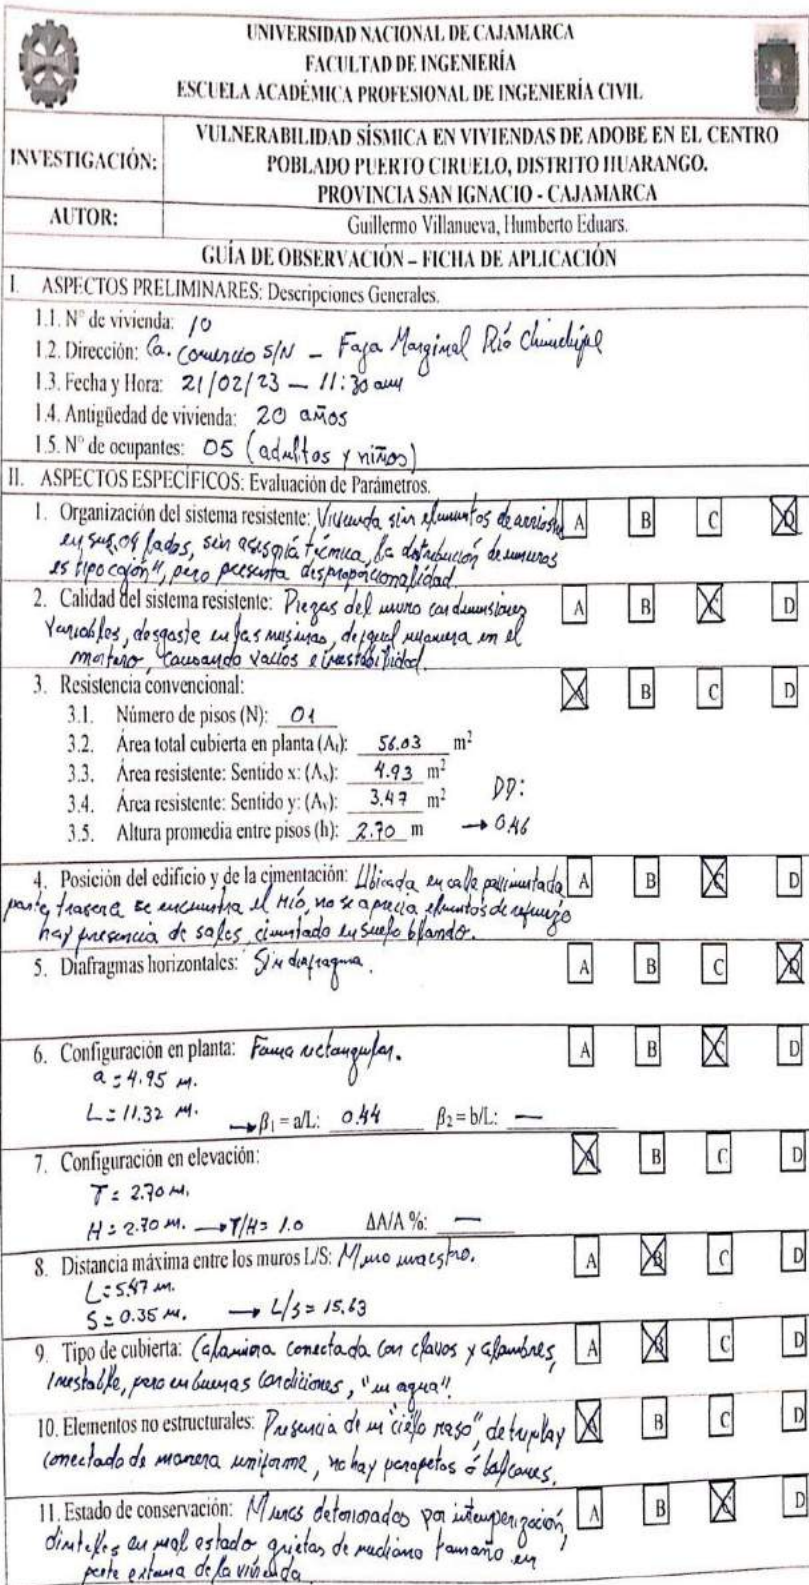 UNIVERSIDAD NACIONAL DE CAJAMARCA
FACULTAD DE INGENIERÍA
ESCUELA ACADÉMICA PROFESIONAL DE INGENIERÍA CIVIL
INVESTIGACIÓN:
VULNERABILIDAD SÍSMICA EN VIVIENDAS DE ADOBE EN EL CENTRO
POBLADO PUERTO CIRUELO, DISTRITO HUARANGO.
PROVINCIA SAN IGNACIO - CAJAMARCA
AUTOR:
Guillermo Villanueva, Humberto Eduars.
GUÍA DE OBSERVACIÓN – FICHA DE APLICACIÓN
I. ASPECTOS PRELIMINARES: Descripciones Generales.
1.1. N° de vivienda: 10
1.2. Dirección: Ca. Comercio S/N – Faja Marginal Río Chinchipe
1.3. Fecha y Hora: 21/02/23 — 11:30 am
1.4. Antigüedad de vivienda: 20 años
1.5. N° de ocupantes: 05 (adultos y niños)
II. ASPECTOS ESPECÍFICOS: Evaluación de Parámetros.
1. Organización del sistema resistente: Vivienda sin elementos de arriostre A B C D
en sus 04 lados, sin asesoría técnica, la distribución de muros
es tipo cajón", pero presenta desproporcionalidad.
2. Calidad del sistema resistente: Piezas del muro con dimensiones A B C D
variables, desgaste en las mismas, de igual manera en el
mortero, causando vacíos e inestabilidad.
3. Resistencia convencional: A B C D
3.1. Número de pisos (N): 01
3.2. Área total cubierta en planta (At): 56.03 m²
3.3. Área resistente: Sentido x: (Ax): 4.93 m²
3.4. Área resistente: Sentido y: (Ay): 3.47 m² DD:
3.5. Altura promedia entre pisos (h): 2.70 m → 0.46
4. Posición del edificio y de la cimentación: Ubicada en calle pavimentada A B C D
parte trasera se encuentra el río, no se aprecia elementos de refuerzo
hay presencia de sales, cimentado en suelo blando.
5. Diafragmas horizontales: Sin diafragma. A B C D
6. Configuración en planta: Forma rectangular. A B C D
a = 4.95 m.
L = 11.32 m. → β1 = a/L: 0.44 β2 = b/L: —
7. Configuración en elevación: A B C D
T = 2.70 m.
H = 2.70 m. → T/H = 1.0 ΔA/A %: —
8. Distancia máxima entre los muros L/S: Muro maestro. A B C D
L = 5.47 m.
S = 0.35 m. → L/s = 15.63
9. Tipo de cubierta: Calamina conectada con clavos y alambres, A B C D
Inestable, pero en buenas condiciones, "un agua".
10. Elementos no estructurales: Presencia de un "cielo raso", de triplay A B C D
conectado de manera uniforme, no hay parapetos ó balcones.
11. Estado de conservación: Muros deteriorados por intemperización, A B C D
dinteles en mal estado grietas de mediano tamaño en
parte externa de la vivienda.